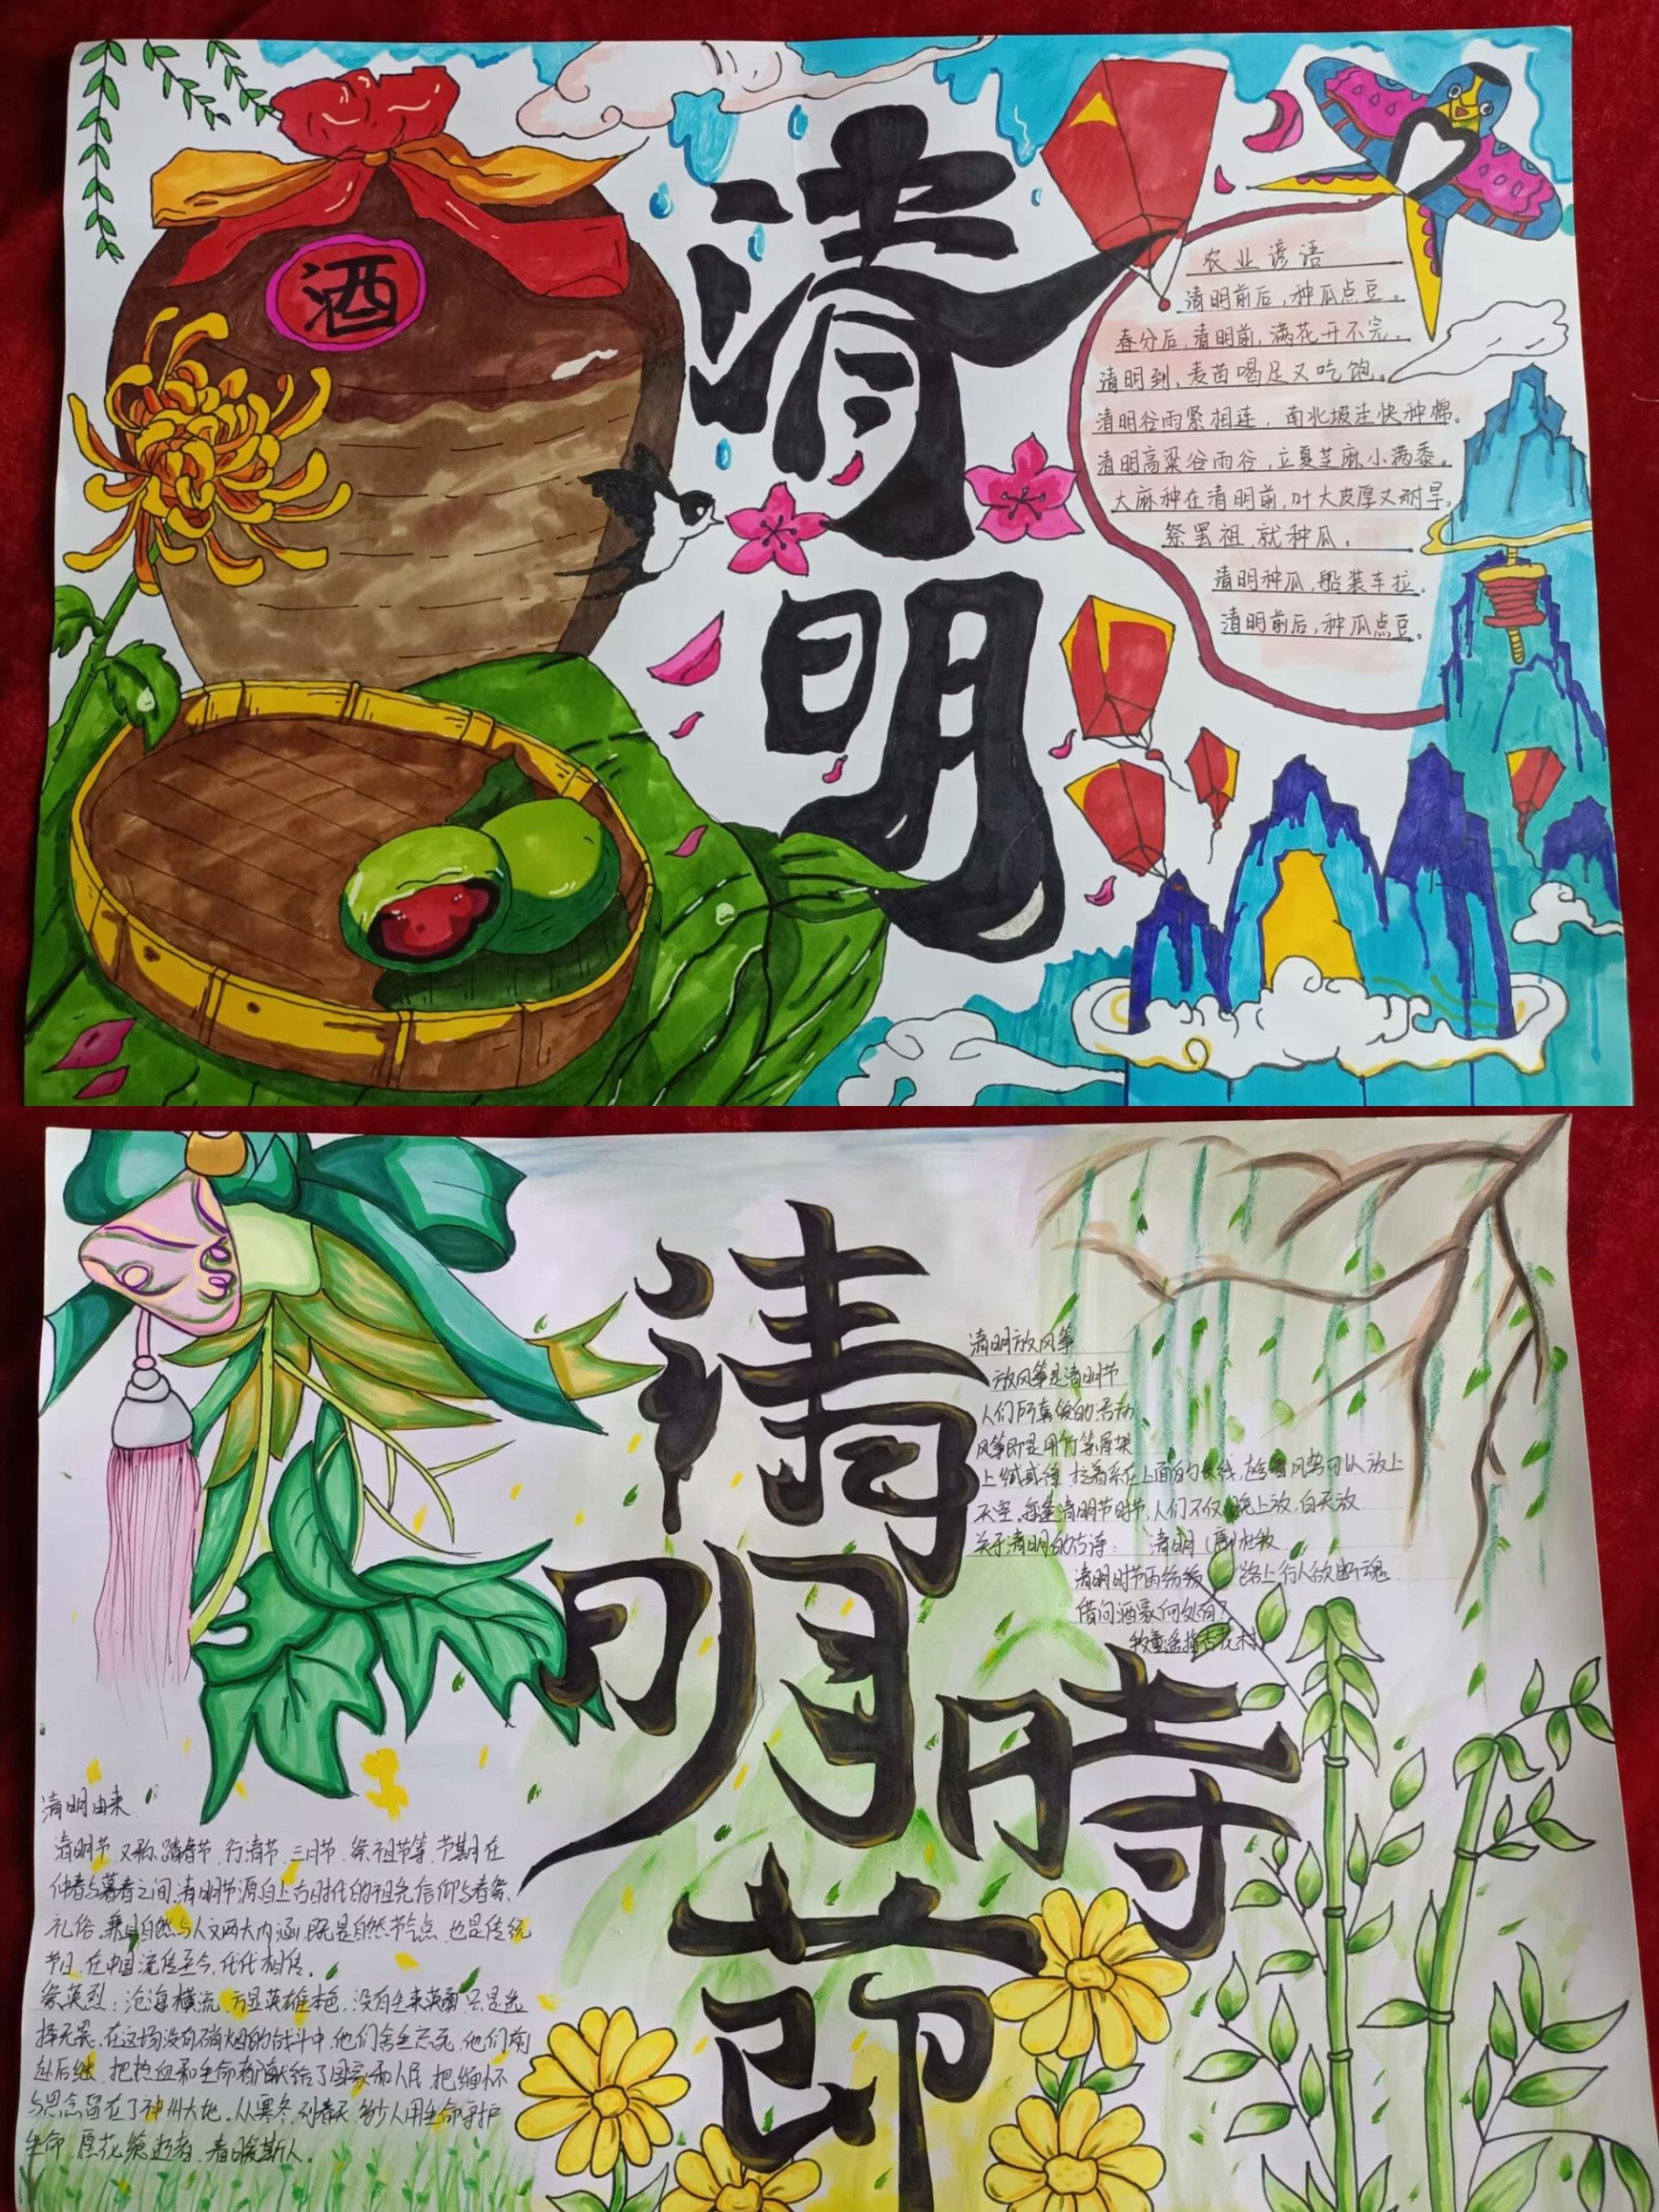 酒
清
明
农业谚语
清明前后,种瓜点豆。
春分后,清明前,满花开不完。
清明到,麦苗喝足又吃饱。
清明谷雨紧相连,南北坡洼快种棉。
清明高粱谷雨谷,立夏芝麻小满黍。
大麻种在清明前,叶大皮厚又耐旱。
祭罢祖,就种瓜。
清明种瓜,船装车拉。
清明前后,种瓜点豆。
清
明
時
节
清明放风筝
放风筝是清明节
人们所喜爱的活动
风筝即是用竹等骨架
上 拉着系在上面的长线,趁着风势可以放上
天空。每逢清明节时节,人们不仅 晚上放.白天放.
关于清明的古诗: 清明 (唐)杜牧
清明时节雨纷纷 路上行人欲断魂
借问酒家何处有?
牧童遥指杏花村
清明由来
清明节 又称 踏春节.行清节.三月节.祭祖节等,节期在
仲春与暮春之间.清明节源自上古时代的祖先信仰与春祭
礼俗.兼具自然与人文两大内涵,既是自然节气点,也是传统
节日.在中国流传至今,代代相传。
祭英烈:沧海横流,方显英雄本色,没有生来英勇只是选
择无畏.在这场没有硝烟的战斗中,他们舍生忘死.他们前
赴后继,把热血和生命都献给了国家和人民,把缅怀
与思念留在了神州大地.从寒冬到春天 多少人用生命守护
生命 愿花 逝者,春暖斯人。